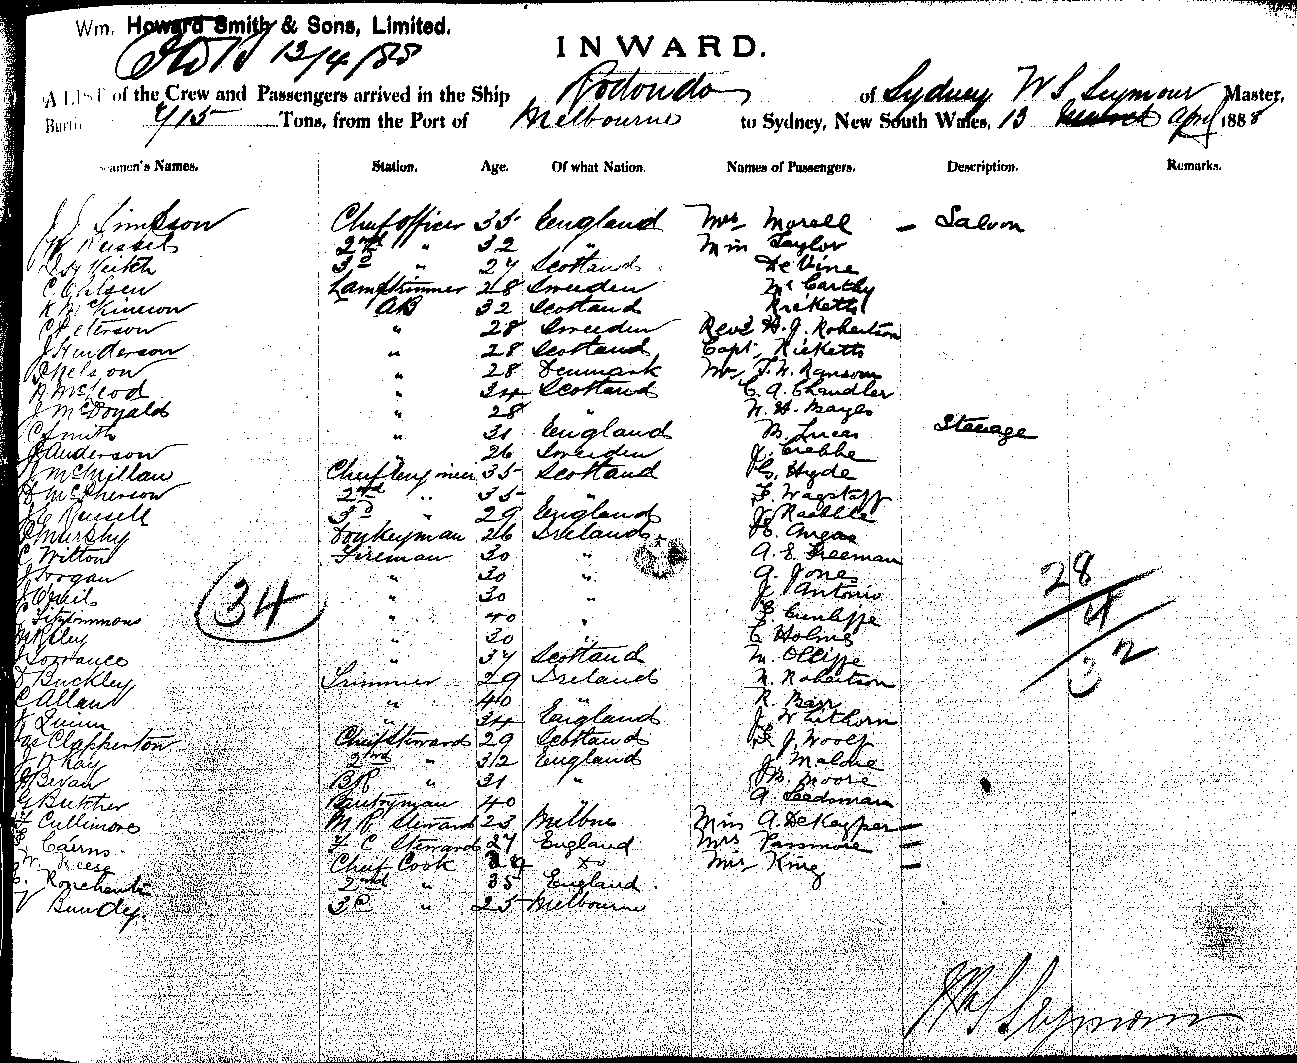 Wm. Howard Smith & Sons, Limited.
13/4/88
INWARD.
A LIST of the Crew and Passengers arrived in the Ship Rodondo of Sydney W S Seymour Master,
Burthen 715 Tons, from the Port of Melbourne to Sydney, New South Wales, 13 April 1888
Seamen's Names. Station. Age. Of what Nation. Names of Passengers. Description. Remarks.
J S Simpson Chief Officer 35 England Mrs Morell — Saloon
W Russel 2nd " 32 " Miss Taylor
Veitch 3d " 27 Scotland De Vine
C Ohlsen Lamptrimmer 28 Sweeden McCarthy
K McKinnon AB 32 Scotland Ricketts
C Peterson " 28 Sweeden Revd H. J. Robertson
J Henderson " 28 Scotland Capt. Ricketts
P Nelson " 28 Denmark Mr J. W. Ransom
A McLeod " 34 Scotland C. A. Chandler
J McDonald " 28 " W. H. Bayes
C Smith " 31 England B. Lucas Steerage
J Anderson " 26 Sweeden J. Crebbe
A McMillan Chief Engineer 35 Scotland G. Hyde
D McPherson 2nd " 35 " F. Wagstaff
J G Russell 3d " 29 England
P Murphy Donkeyman 26 Ireland Angas
C Wilton Fireman 30 " A. E. Freeman
J Horgan " 30 " G. Jones
J O'Neil " 30 " J Antonio
Fitzsimmons " 40 " Cunliffe
Riley " 30 " C Holmes
Torrance " 37 Scotland M. Olliffe
D Buckley Trimmer 29 Ireland N. Robertson
C Allan " 40 " R. Barr
J Quinn " 34 England J. Whithorn
Clapperton Chief Steward 29 Scotland J Woolf
J McKay 2nd " 32 England J. Malone
J Bevan BR " 31 " Moore
G Butcher Pantryman 40 A Leedsman
F Cullimore M R Steward 23 Melbne Miss A. DeKeyper —
E Cairns F C Steward 27 England Mrs Passmore —
W. Reese Chief Cook 29 do Miss King —
2nd " 35 England
V Bundey 3d " 25 Melbourne
34
28
4
32
Wm S Seymour